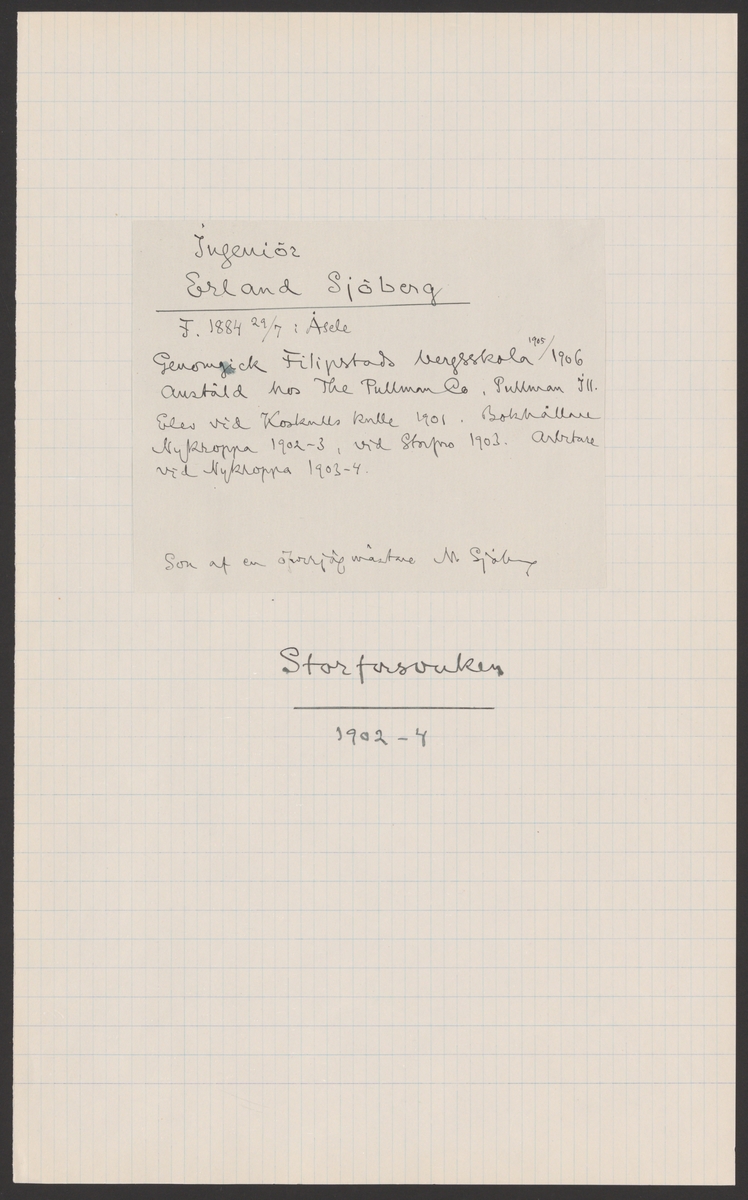 Ingeniör
Erland Sjöberg
F. 1884 29/7 i Åsele
Genomgick Filipstads bergsskola 1905/1906
Anställd hos The Pullman Co, Pullman Ill.
Elev vid Koskulls kulle 1901. Bokhållare
Nykroppa 1902-3, vid Storfors 1903. Arbetare
vid Nykroppa 1903-4.
Son af en öfverjägmästare M. Sjöberg
Storforsvuken
1902-4